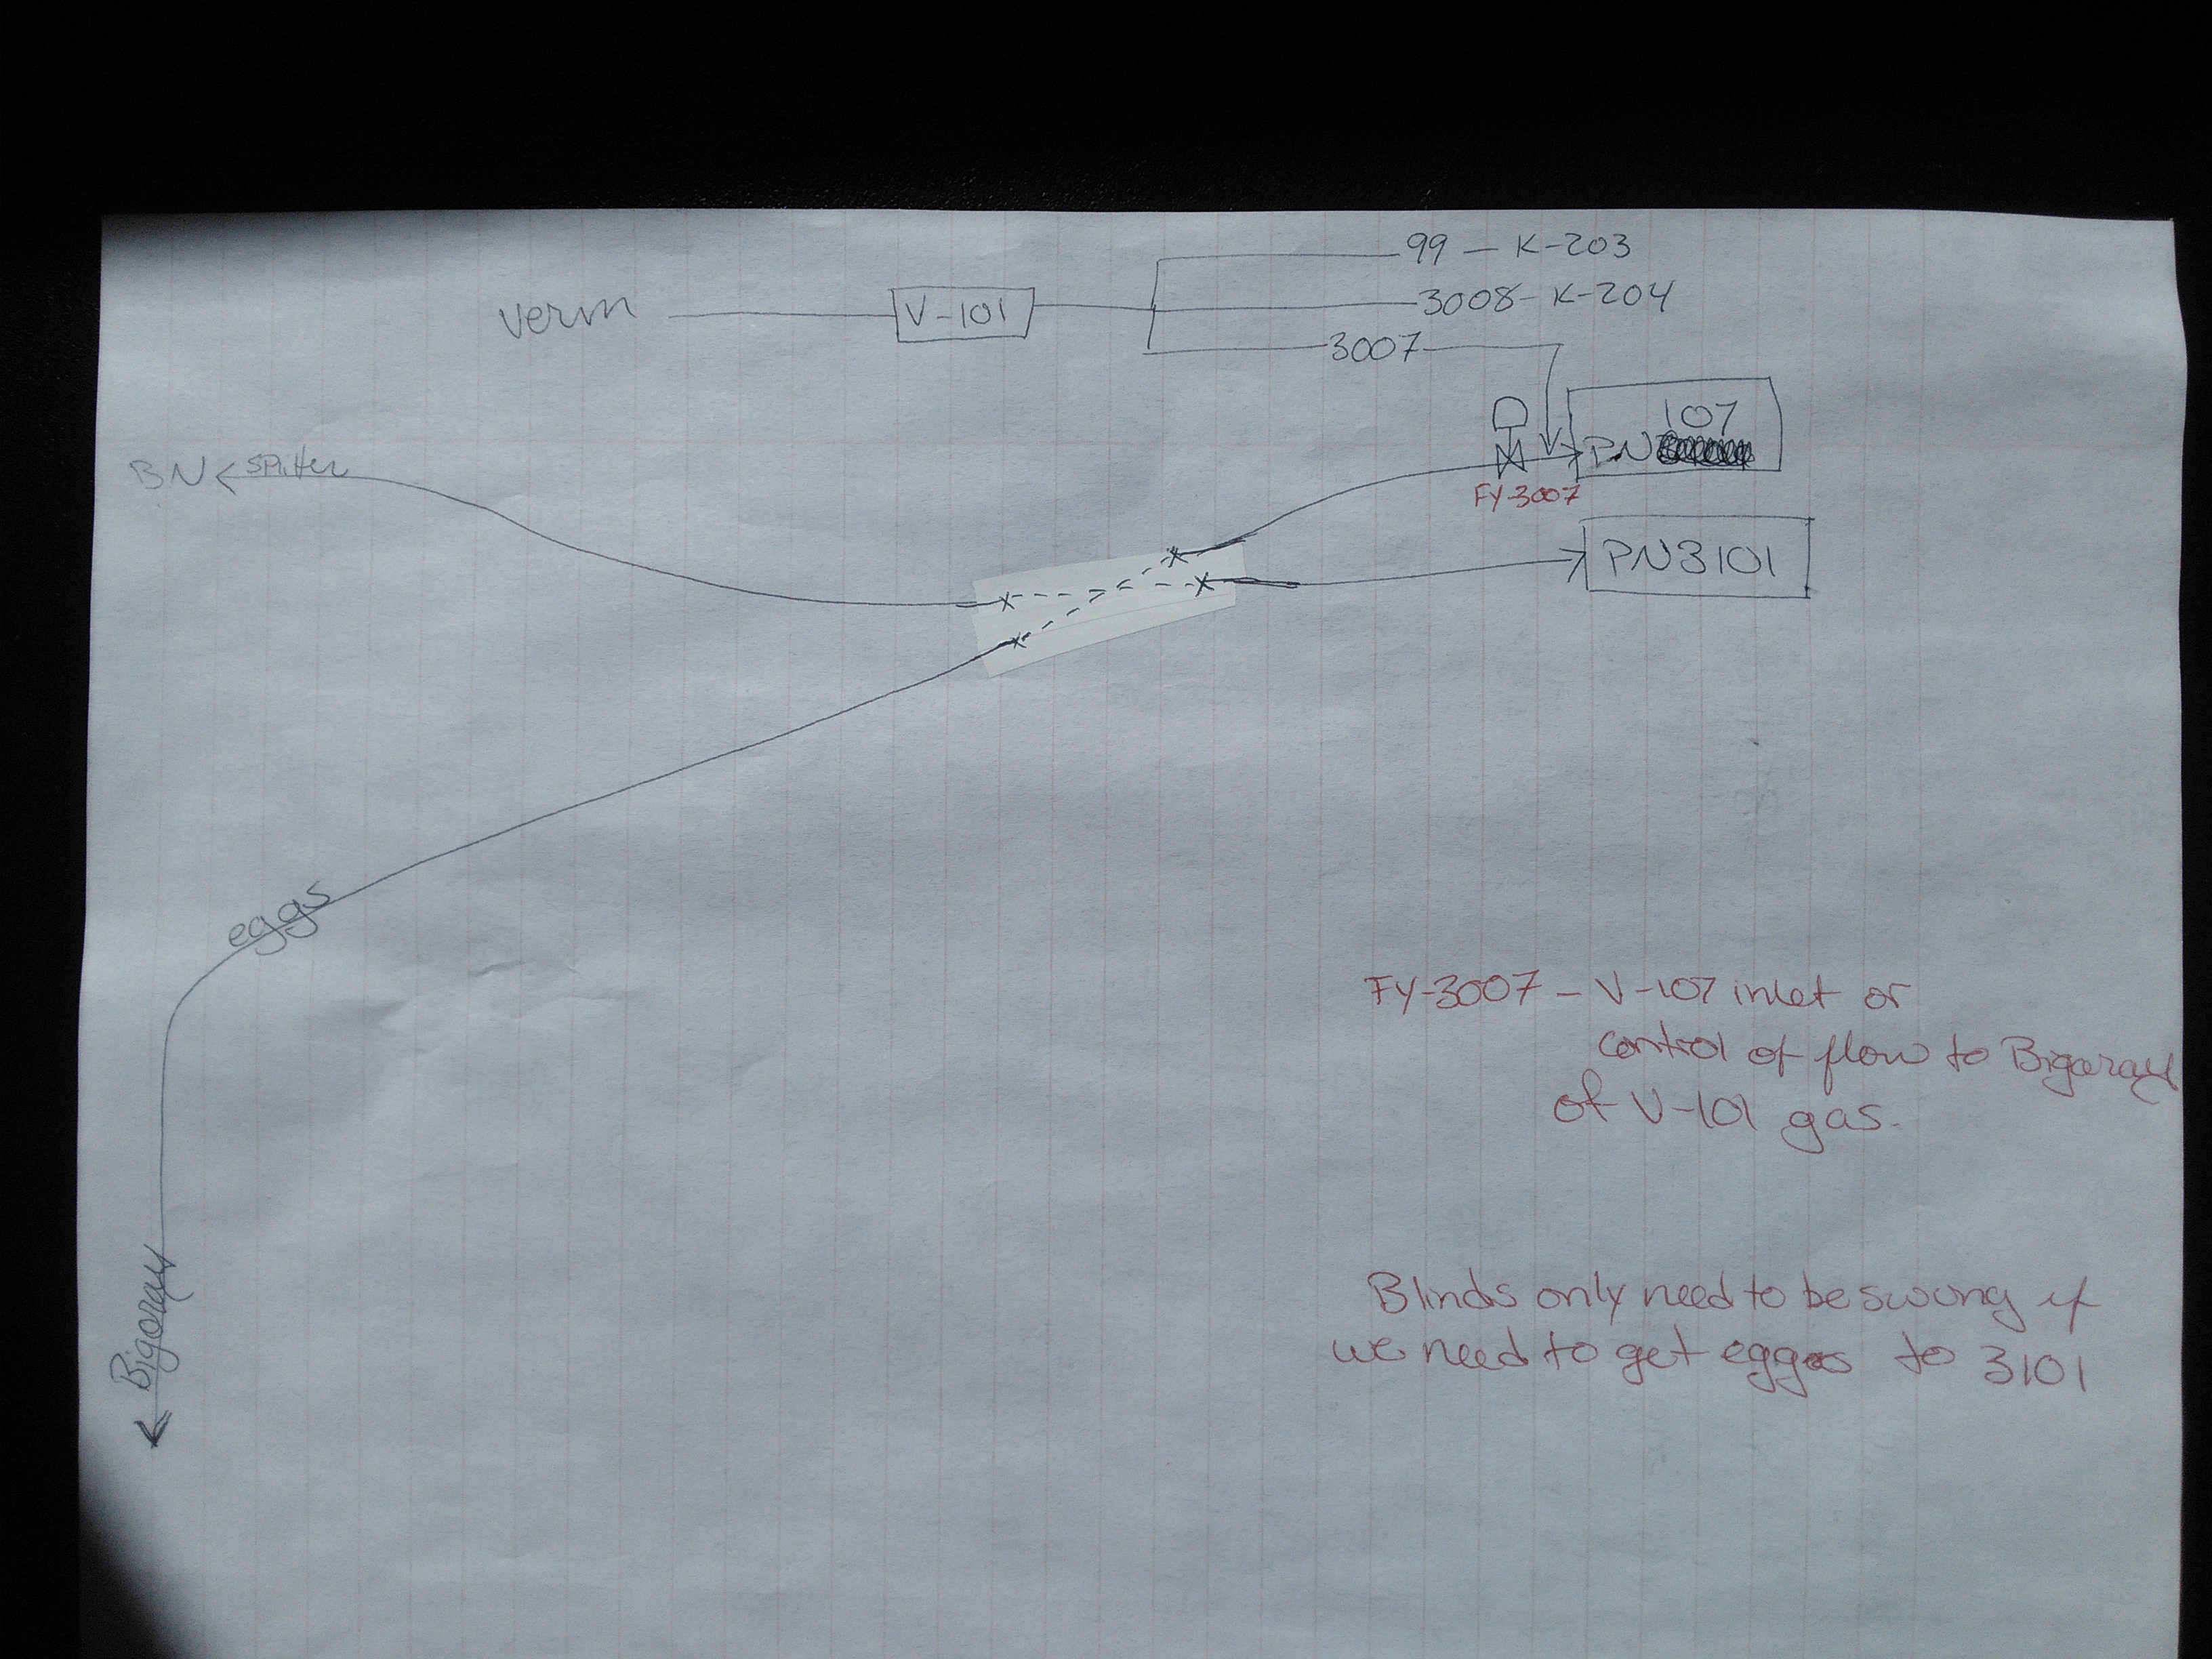 99 - K-203
verm V-101 3008 - K-204
3007
107
PN
BN splitter
FY-3007
PN3101
eggs
FY-3007 - V-107 inlet or
control of flow to Bigoray
of V-101 gas.
Bigoray
Blinds only need to be swung if
we need to get eggs to 3101